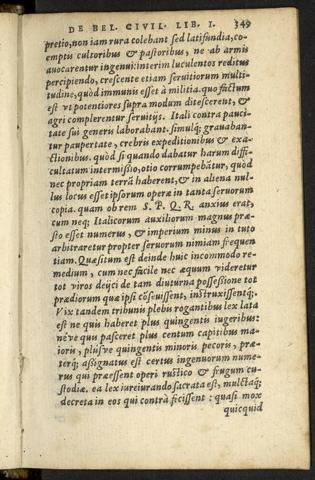 DE BEL. CIVIL. LIB. I. 349
pretio, non iam rura colebant sed latifundia, co-
emptis cultoribus & pastoribus, ne ab armis
auocarentur ingenui: interim luculentos reditus
percipiendo, crescente etiam seruitiorum multi-
tudine, quòd immunis esset à militia. quo factum
est vt potentiores supra modum ditescerent, &
agri complerentur seruitijs. Itali contra pauci-
tate sui generis laborabant. simulq; grauaban-
tur paupertate, crebris expeditionibus & exa-
ctionibus. quòd si quando dabatur harum diffi-
cultatum intermissio, otio corrumpebãtur, quòd
nec propriam terrã haberent, & in aliena nul-
lus locus esset ipsorum operæ in tanta seruorum
copia. quam ob rem S. P. Q. R. anxius erat,
cum neq; Italicorum auxiliorum magnus præ-
sto esset numerus, & imperium minus in tuto
arbitraretur propter seruorum nimiam frequen
tiam. Quæsitum est deinde huic incommodo re-
medium, cum nec facile nec æquum videretur
tot viros deijci de tam diuturna possessione tot
prædiorum quæ ipsi cõseuissent, instruxissentq;.
Vix tandem tribunis plebis rogantibus lex lata
est ne quis haberet plus quingentis iugeribus:
né ve quis pasceret plus centum capitibus ma-
ioris, plúsve quingentis minoris pecoris, præ-
terq; assignatus est certus ingenuorum nume-
rus qui præessent operi rustico & frugum cu-
stodiæ. ea lex iureiurando sacrata est, mulctaq;
decreta in eos qui contrà fecissent: quasi mox
quicquid